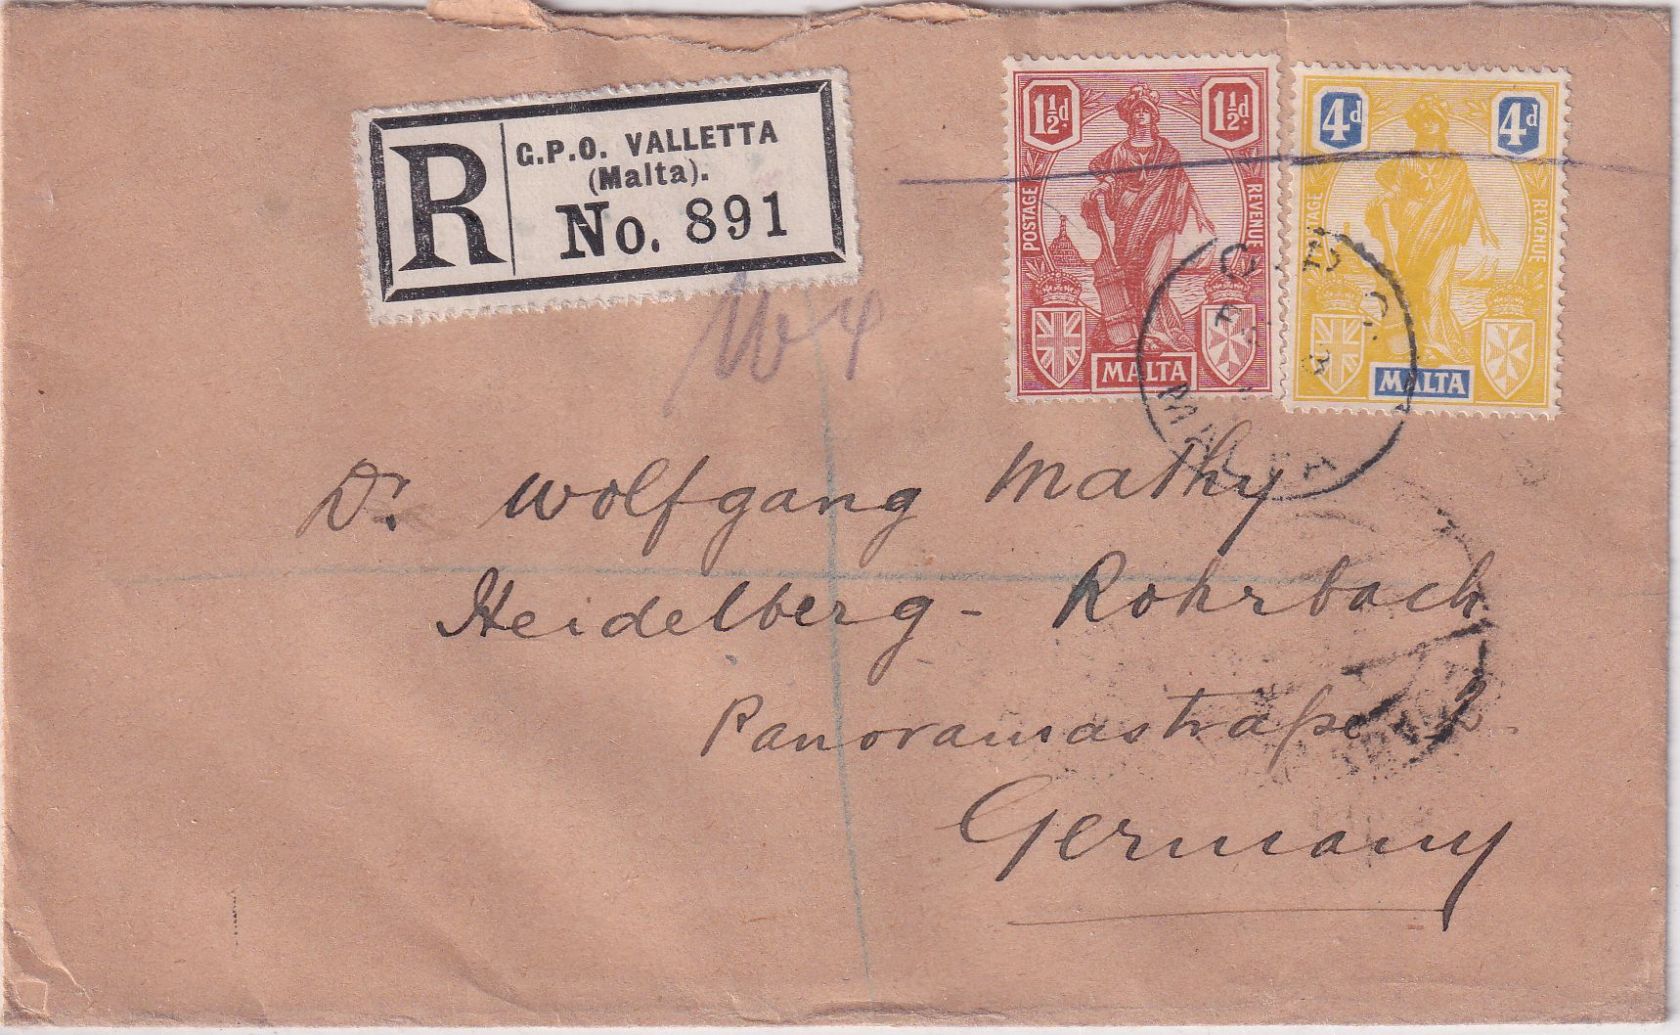 R
G.P.O. VALLETTA
(Malta).
No. 891
1½d 1½d
POSTAGE
REVENUE
MALTA
4d 4d
POSTAGE
REVENUE
MALTA
MALTA
Dr. Wolfgang Mathy
Heidelberg - Rohrbach
Panoramastraße 2
Germany